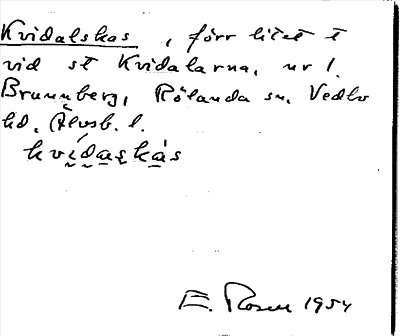 Kvidalskas, förr litet t
vid st Kvidalarna, nr 1
Brunnberg, Rölanda sn. Vedbo
hd, Älvsb. l.
kvídaskás
E. Rosen 1954